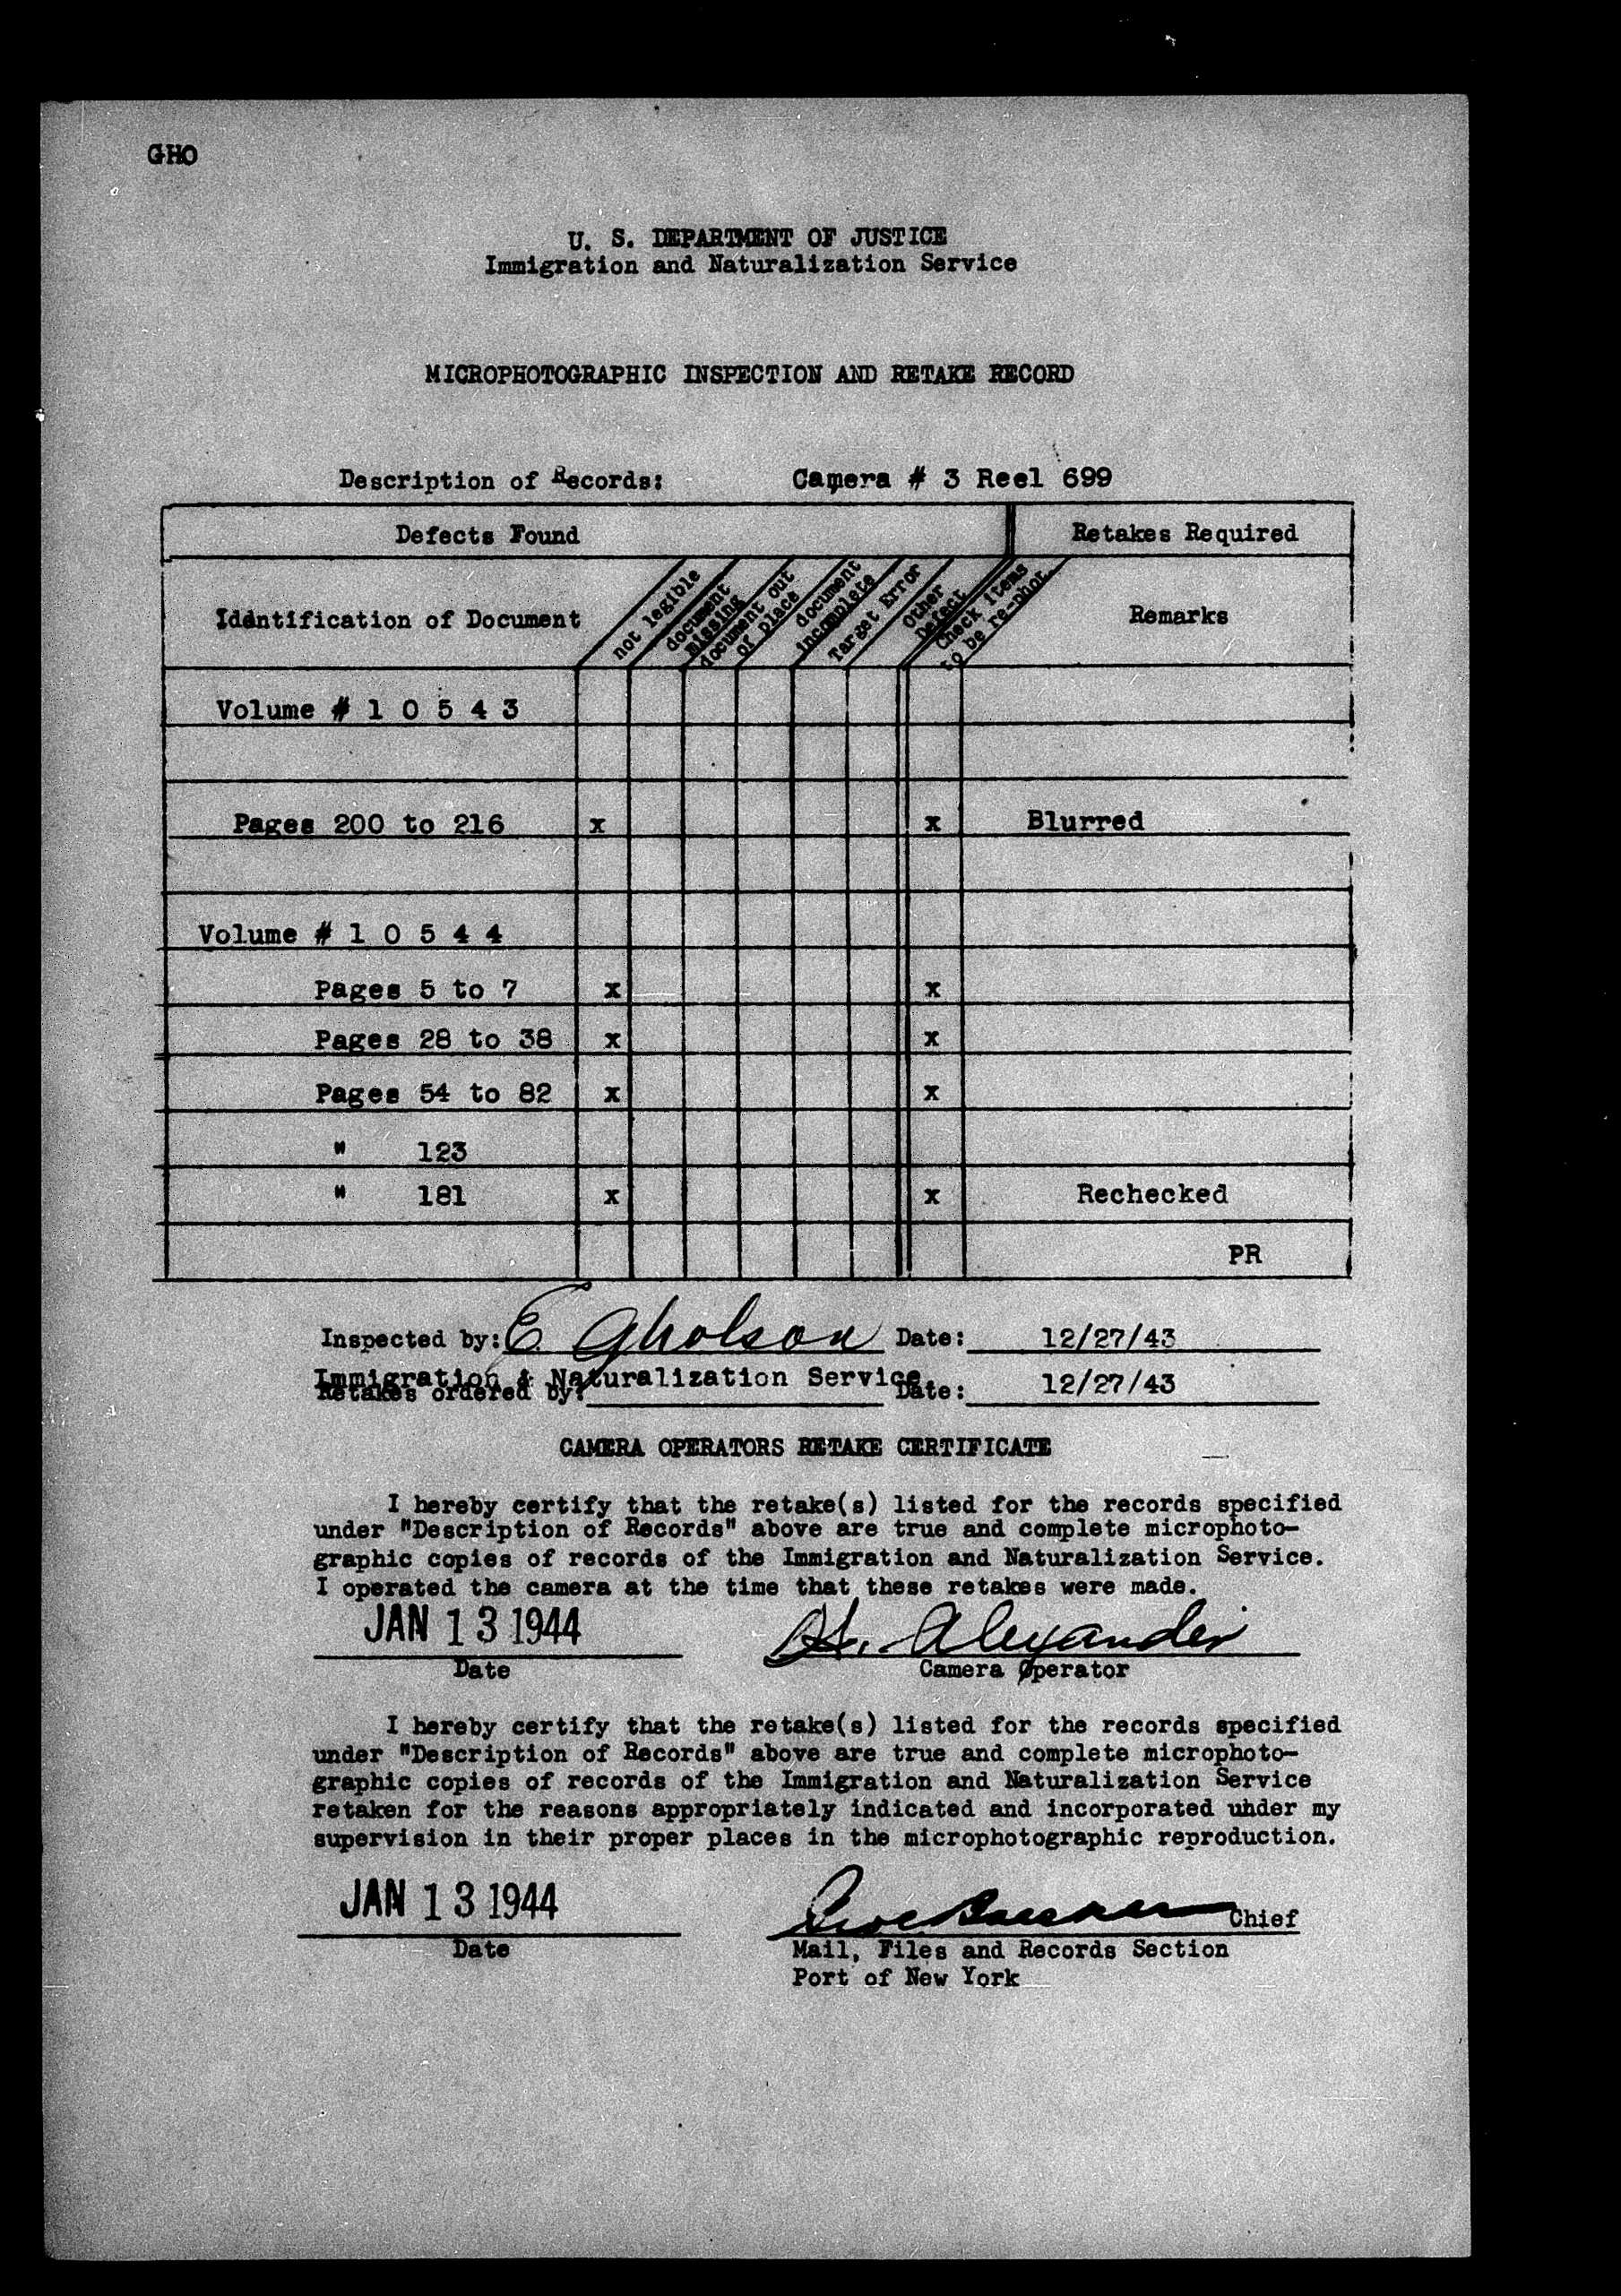 GHO
U. S. DEPARTMENT OF JUSTICE
Immigration and Naturalization Service
MICROPHOTOGRAPHIC INSPECTION AND RETAKE RECORD
Description of Records: Camera # 3 Reel 699
Defects Found Retakes Required
Identification of Document
not legible
document
missing
document out
of place
document
incomplete
Target Error
Other
Defect
Check items
to be re-phot.
Remarks
Volume # 1 0 5 4 3
Pages 200 to 216 x x Blurred
Volume # 1 0 5 4 4
Pages 5 to 7 x x
Pages 28 to 38 x x
Pages 54 to 82 x x
" 123
" 181 x x Rechecked
PR
Inspected by: E. Gholson Date: 12/27/43
Immigration & Naturalization Service
Retakes ordered by: Date: 12/27/43
CAMERA OPERATORS RETAKE CERTIFICATE
I hereby certify that the retake(s) listed for the records specified
under "Description of Records" above are true and complete microphoto-
graphic copies of records of the Immigration and Naturalization Service.
I operated the camera at the time that these retakes were made.
JAN 13 1944 H. Alexander
Date Camera Operator
I hereby certify that the retake(s) listed for the records specified
under "Description of Records" above are true and complete microphoto-
graphic copies of records of the Immigration and Naturalization Service
retaken for the reasons appropriately indicated and incorporated under my
supervision in their proper places in the microphotographic reproduction.
JAN 13 1944 Chief
Date Mail, Files and Records Section
Port of New York